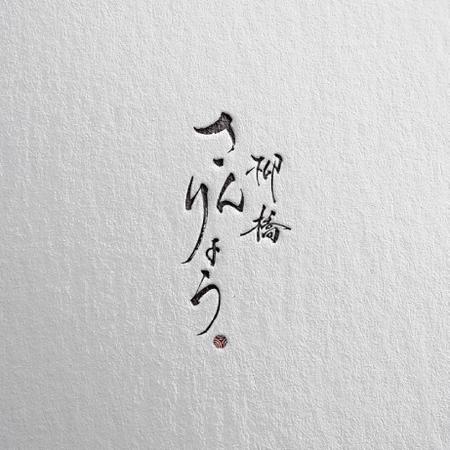 柳橋
さんりょう